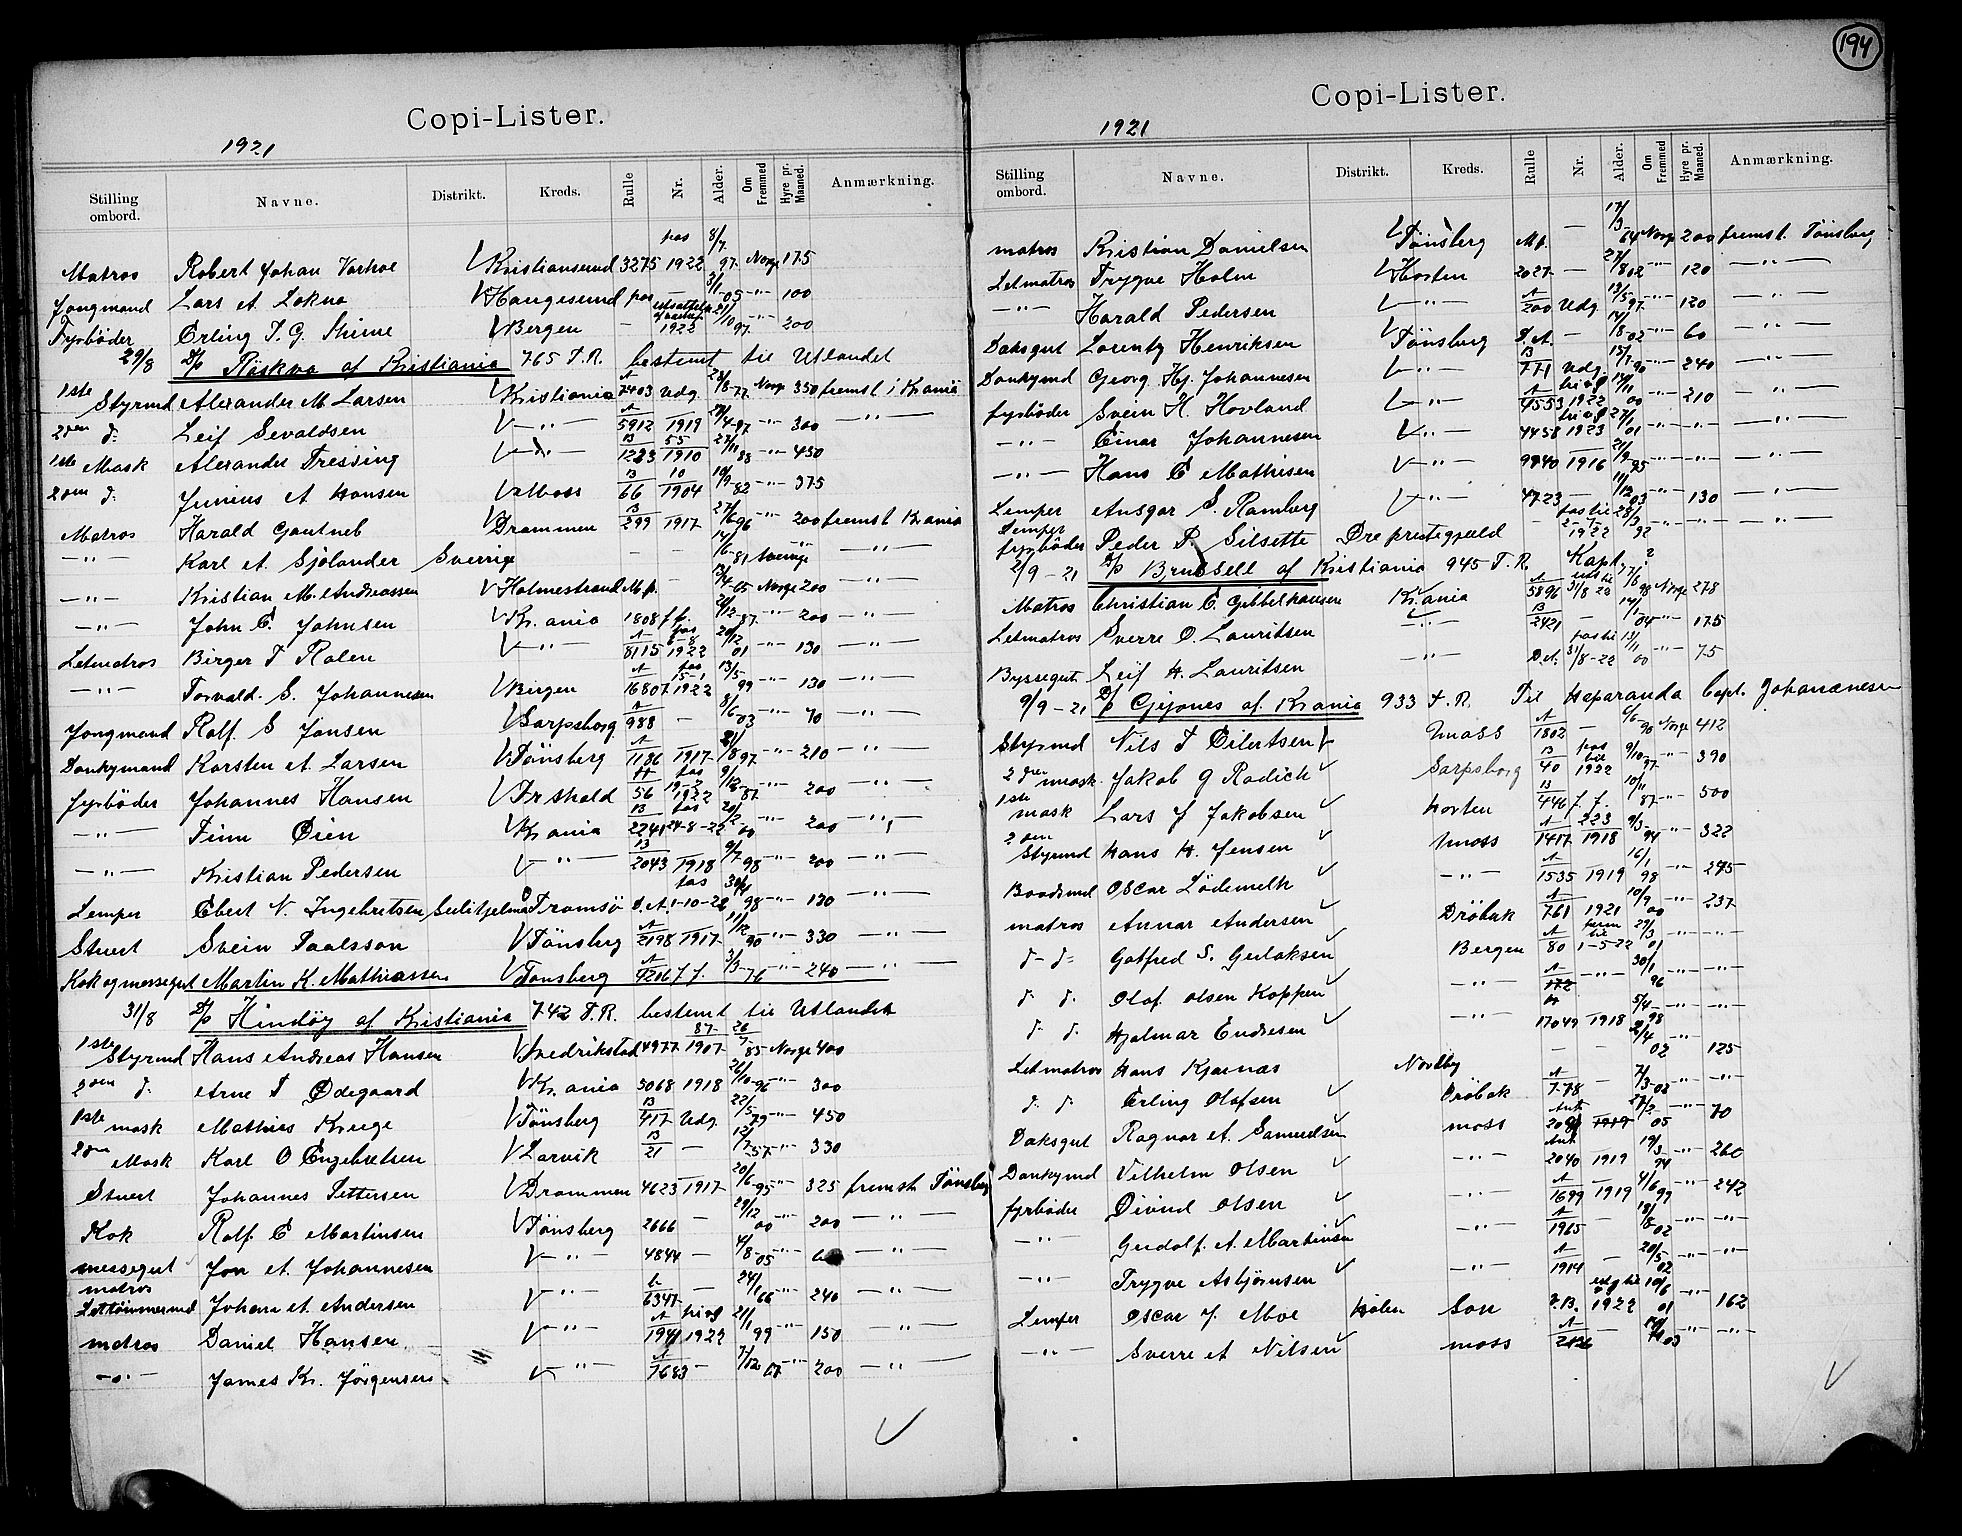 194
Copi-Lister.
1921
Stilling ombord. Navne. Distrikt. Kreds. Rulle Nr. Alder. Om Fremmed Hyre pr. Maaned. Anmærkning.
Matros Robert Johan Varhoe Kristiansund 3275 pas 1922 8/7. 97. Norge 175
Jongmand Lars A. Lokna Haugesund pas 3/1-05 -"- 100
Fyrbøder Erling T. G. Skinne Bergen - 1922 /10 97. -"- 200
29/8 D/S Røskva af Kristiania 765 T.R. bestemt til Utlandet
1ste Styrmd Alexander M. Larsen Kristiania A 7403 Udg. /8-77 Norge 350 fremst. i Krania
2den d: Leif Sevaldsen -"- A 5912 1919 /4-97 -"- 300 -"-
1ste Mask Alexander Tressing -"- B 1223 55 1910 27/11 88 -"- 450
2den d: Junius A Hansen Moss B 66 10 1904 10/9 82 -"- 375
Matros Harald Gautneb Drammen B 299 1917 27/6 96 -"- 200 fremst Krania
-"- Karl A. Sjølander Sverrige - - 14/6-81 Sverige -"- -"-
-"- Kristian M. Andreassen Holmestrand M.p. - 13/4-05 Norge 200 -"-
-"- John E. Johnsen Kr.ania 1808 f.f. /12-87. -"- 200 -"-
Letmatros Birger T Ralen -"- A 8115 pas 6-8 1922 20/12 01 -"- 130 -"-
-"- Torvald. S. Johannesen Bergen A 16807 pas 15-1 1922 13/5 99 -"- 130 -"-
Jongmand Rolf. S Jonsen Sarpsborg A 988 - 8/6 03 -"- 70 -"-
Donkymand Karsten A. Larsen Tönsberg A 1186 1917 21/8 97 -"- 210 -"-
fyrbøder Johannes Hansen Fr.shald A 56 pas 19-2 1922 9/12-87 -"- 200 -"-
-"- Finn Øien Kr.ania B 2241 pas 24-8-22 20/12-00 -"- 200 -"-
-"- Kristian Pedersen -"- B 2043 1918 9/7 98 -"- 200 -"-
Lemper Ebert N. Ingebretsen Tromsø D.A. pas 1-10-22 30/4 98 -"- 130 -"-
Stuert Svein Paalsson Tönsberg A 2198 1917 11/12 90 -"- 330 -"-
Kok og messegut Martin K. Mathiassen Tønsberg A 4216 f.f. 3/3-76 -"- 240 -"-
31/8 D/S Hindöy af Kristiania 742 T.R. bestemt til Utlandet
1ste Styrmd Hans Andreas Hansen Fredrikstad 4977 87 1907 26/7-85 Norge 400
2den d: Arne T Ødegaard Kr.ania 5068 1918 26/10-96 -"- 300
1ste mask Mathias Kruge Tönsberg B 417 Udg. 22/5-79 -"- 450
2den Mask Karl O Engebretsen Larvik B 21 - 12/7-57 -"- 330
Stuert Johannes Pettersen Drammen 4623 1917 20/6-95 -"- 325 fremst. Tönsberg
Kok Rolf. E Martinsen Tönsberg 2666 - 29/12 00 -"- 200 -"-
messegut Jon A. Johannesen -"- 4844 - 4/8-05 -"- -"-
matros Lettömmermd Johan A. Andersen -"- 6347 - 24/1 66 -"- 240 -"-
matros Daniel Hansen -"- A 1941 1922 21/1 99 -"- 150 -"-
-"- James Kr. Jörgensen -"- A 7683 - 7/12 -"- 200 -"-
Copi-Lister.
1921
Stilling ombord. Navne. Distrikt. Kreds. Rulle Nr. Alder. Om Fremmed Hyre pr. Maaned. Anmærkning.
matros Kristian Danielsen Tönsberg M.p. - 17/3-64 Norge 200 fremst. Tönsberg
Letmatros Trygve Holm Horten 2027 - 27/8 02 -"- 120 -"-
-"- Harald Pedersen -"- A 200 Udg. 13/5 97. -"- 120 -"-
Daksgut Lorentz Henriksen Tönsberg D.A. - 14/8-02 -"- 60 -"-
Donkymd Georg Hj. Johannesen -"- B 771 Udg. 15/7-90 -"- 240 -"-
fyrbøder Svein H. Hovland -"- A 4553 1922 /11 00 -"- 210 -"-
-"- Einar Johannesen -"- 4458 1923 27/1 01 -"- -"- -"-
-"- Hans E Mathisen -"- 9940 1916 21/9-95 -"- -"- -"-
Lemper Ansgar S. Ramberg -"- 4723 - 11/12 03 -"- 130 -"-
Lemper fyrbøder Peder P. Silsette Øre prestegjeld - pas til 2-7-1922 28/3 92 -"- -"- -"-
2/9-21 D/S Brussell af Kristiania 945 T.R. Kapt. ?
Matros Christian E. Gebbelhausen Kr.ania A 5896 31/8 22 27/6 98 Norge 278
Letmatros Sverre O. Lauritsen -"- B 2421 - 04 -"- 175
Byssegut Leif H. Lauritsen -"- D.A. pas til 31/8-22 13/11 00 -"- 75
9/9-21 D/S Gijones af Krania 933 T.R. Til Haparanda Capt. Johannesen
Styrmd Nils T Eilertsen Moss A 1802 - 6/6-90 Norge 412
2den mask. Jakob G Radich Sarpsborg B 40 pas til 1922 9/10-97 -"- 390
1ste mask Lars J Jakobsen Horten B 446 f.f. 10/11 87 -"- 500
2den Styrmd Hans H. Jensen Moss A 1417 223 1918 9/3-94 -"- 322
Baadsmd Oscar Lödemelh -"- A 1535 1919 16/1 98 -"- 275
matros Annar Andersen Dröbak A 761 1921 10/9 00 -"- 237
d- d- Gotfred S. Gerlaksen Bergen A 80 1-5-22 29/3 01 -"- -"-
d. d. Olaf. Olsen Koppen -"- A 172 -"- 30/1 96 -"- -"-
d. d. Hjalmar Endresen -"- 17049 1918 5/4-98 -"- -"-
Letmatros Hans Kjærnas Nordby - - /4 02 -"- 125
d. d. Erling Olafsen Dröbak A 778 - 7/3-02 -"- -"-
Daksgut Ragnar A. Samuelsen moss Ank 1919 27/2 05 -"- 70
Donkymd Vilhelm Olsen -"- Ank 2040 1919 19/3 94 -"- 260
fyrbøder Öivind Olsen -"- A 1699 1919 4/6 99 -"- 242
-"- Gudolf. A. Martinsen -"- A 1965 - 18/8-02 -"- -"-
-"- Trygve Asbjørnsen -"- A 1914 - 20/5 02 -"- -"-
Lemper Oscar J. Moe Hølen Son F.B. 1922 10/6 01 -"- 162
-"- Sverre A Nilsen moss A - 03 -"- -"-